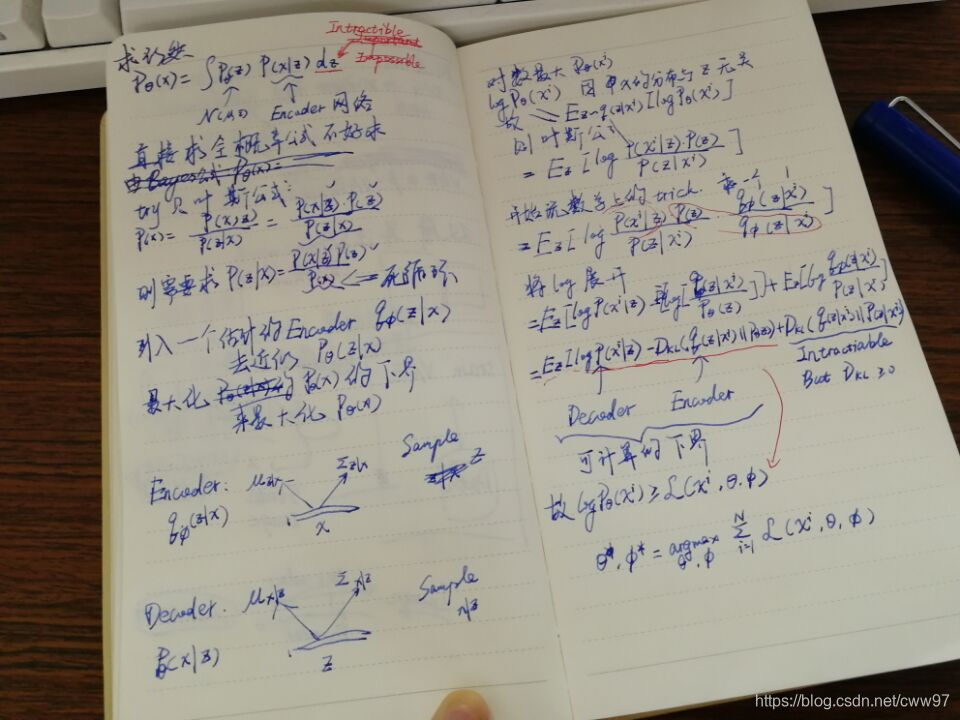 求
Intractible
Impossible
Pθ(x) = ∫ Pθ(z) P(x|z) dz
N(μ,σ) Encoder 网络
直接求全概率公式不好求
由Bayes公式 Pθ(x)=
try 贝叶斯公式:
P(x) = P(x,z) / P(z|x) = P(x|z)·P(z) / P(z|x)
则需要求 P(z|x) = P(x|z)P(z) / P(x) <= 死循环
引入一个估计的Encoder qϕ(z|x)
去近似 Pθ(z|x)
最大化 Pθ(x) 的下界
来最大化 Pθ(x)
Encoder: μz|x Σz|x Sample z
qϕ(z|x) x
Decoder: μx|z Σx|z Sample
x|z
Pθ(x|z) z
对数最大 Pθ(xⁱ)
log Pθ(xⁱ) 因 x的分布与 z 无关
故 = Ez~q(z|xⁱ)[log Pθ(xⁱ)]
贝叶斯公式
= Ez[log P(xⁱ|z)·P(z) / P(z|xⁱ)]
开始玩数学上的trick. 乘一个1
= Ez[log P(xⁱ|z)·P(z) / P(z|xⁱ) · qϕ(z|xⁱ) / qϕ(z|xⁱ)]
将log展开
= Ez[log P(xⁱ|z) - log[qϕ(z|xⁱ) / Pθ(z)]] + Ez[log qϕ(z|xⁱ) / P(z|xⁱ)]
= Ez[log P(xⁱ|z) - DKL(q(z|xⁱ)||Pθ(z)) + DKL(q(z|xⁱ)||P(z|xⁱ))
Intractiable
But DKL ≥ 0
Decoder Encoder
可计算的下界
故 log Pθ(xⁱ) ≥ L(xⁱ, θ, ϕ)
θ*, ϕ* = argmax θ, ϕ Σ i=1 N L(xⁱ, θ, ϕ)
https://blog.csdn.net/cww97